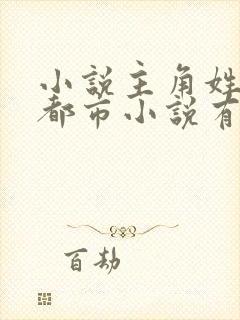 小説主角姓
都市小説有
百劫